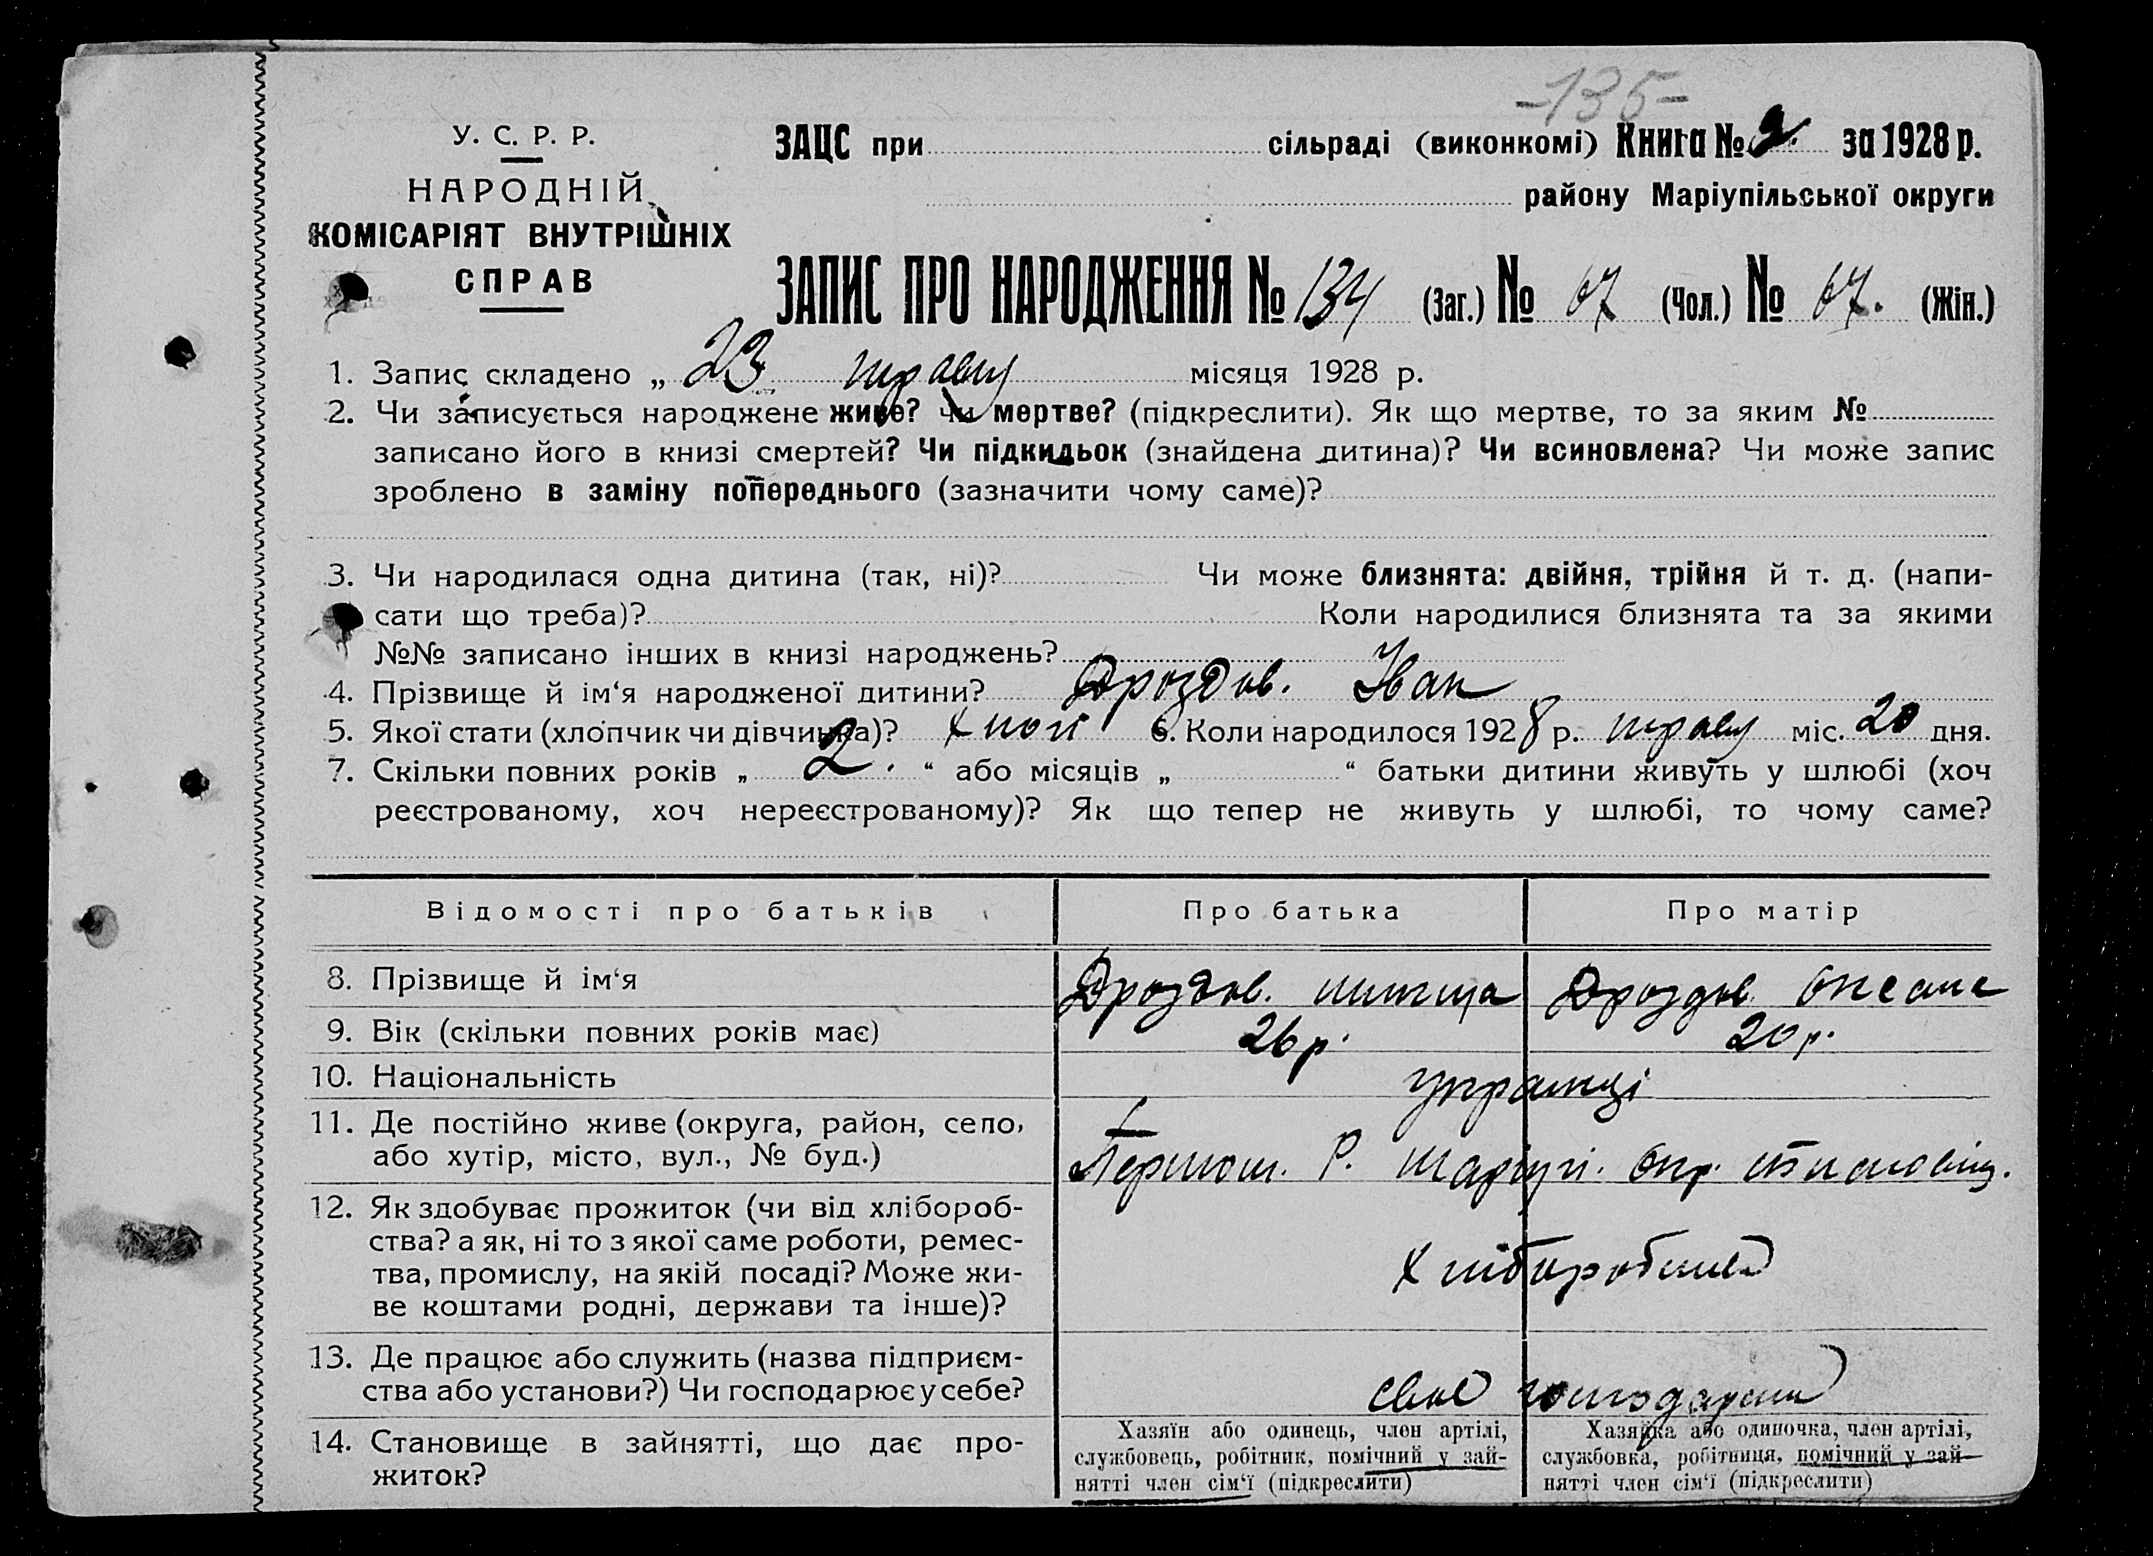 -135-
У. С. Р. Р.
НАРОДНІЙ
КОМІСАРІЯТ ВНУТРІШНІХ
СПРАВ
ЗАЦС при сільраді (виконкомі) Книга № 2. за 1928 р.
району Маріупільської округи
ЗАПИС ПРО НАРОДЖЕННЯ № 134 (Заг.) № 67 (Чол.) № 67. (Жін.)
1. Запис складено „ 23 травн місяця 1928 р.
2. Чи записується народжене живе? чи мертве? (підкреслити). Як що мертве, то за яким №
записано його в книзі смертей? Чи підкидьок (знайдена дитина)? Чи всиновлена? Чи може запис
зроблено в заміну попереднього (зазначити чому саме)?
3. Чи народилася одна дитина (так, ні)? Чи може близнята: двійня, трійня й т. д. (напи-
сати що треба)? Коли народилися близнята та за якими
№№ записано інших в книзі народжень?
4. Прізвище й ім‘я народженої дитини? Дроздов. Іван
5. Якої стати (хлопчик чи дівчинка)? хлоп 6. Коли народилося 1928 р. травн міс. 20 дня.
7. Скільки повних років „ 2. “ або місяців „ “ батьки дитини живуть у шлюбі (хоч
реєстрованому, хоч нереєстрованому)? Як що тепер не живуть у шлюбі, то чому саме?
Відомості про батьків Про батька Про матір
8. Прізвище й ім‘я Дроздов. Дроздов
9. Вік (скільки повних років має) 26 р. 20 р.
10. Національність українці
11. Де постійно живе (округа, район, село,
або хутір, місто, вул., № буд.) Р. Маріуп. Окр.
12. Як здобуває прожиток (чи від хлібороб-
ства? а як, ні то з якої саме роботи, ремес-
тва, промислу, на якій посаді? Може жи-
ве коштами родні, держави та інше)?
13. Де працює або служить (назва підприєм-
ства або установи?) Чи господарює у себе? своє
14. Становище в зайнятті, що дає про-
житок?
Хазяїн або одинець, член артілі,
службовець, робітник, помічний у зай-
нятті член сім‘ї (підкреслити)
Хазяйка або одиночка, член артілі,
службовка, робітниця, помічний у зай-
нятті член сім‘ї (підкреслити)